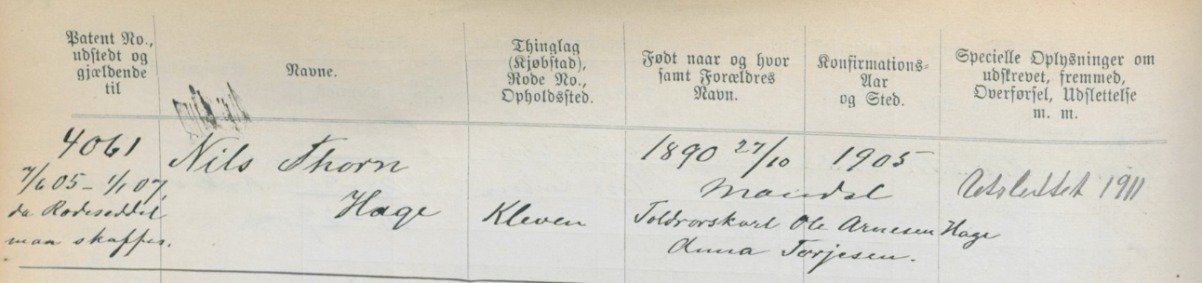 Patent No.,
udstedt og
gjældende
til
Navne.
Thinglag
(Kjøbstad),
Rode No.,
Opholdssted.
Født naar og hvor
samt Forældres
Navn.
Konfirmations-
Aar
og Sted.
Specielle Oplysninger om
udskrevet, fremmed,
Overførsel, Udslettelse
m. m.
4061
7/6 05 – 1/1 07,
da Rodeseddel
maa skaffes.
Nils Thorn
Hage
Kleven
1890 27/10
Mandal
Toldrorskarl Ole Arnesen Hage
Anna Torjesen.
1905
Utslettet 1911